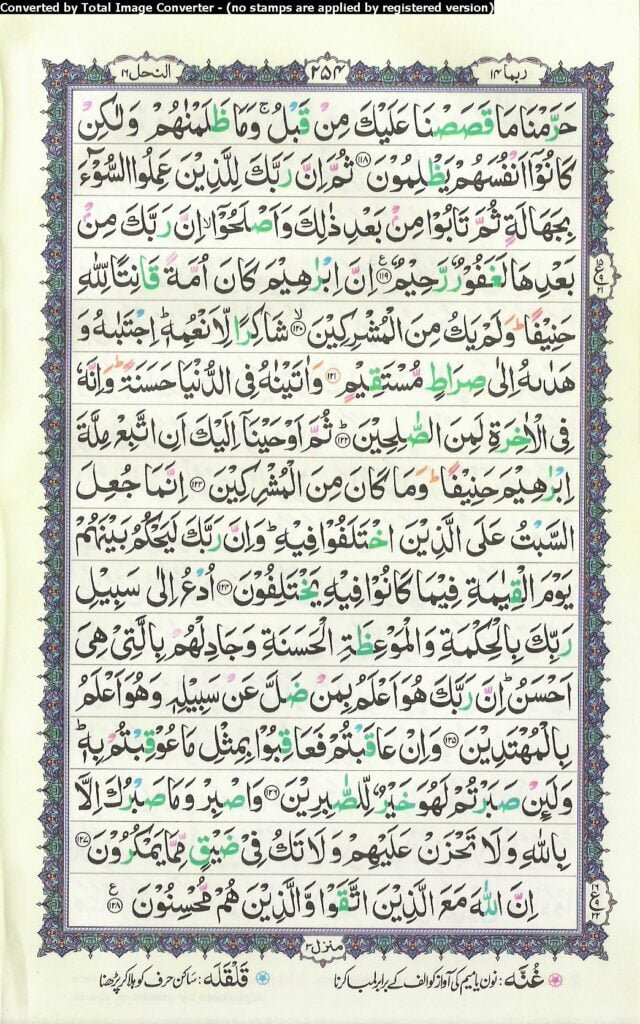 Converted by Total Image Converter - (no stamps are applied by registered version)
النحل ١٦ ٢٥٤ ربما ١٤
حَرَّمْنَا مَا قَصَصْنَا عَلَيْكَ مِنْ قَبْلُ ۚ وَمَا ظَلَمْنٰهُمْ وَلٰكِنْ
كَانُوْۤا اَنْفُسَهُمْ يَظْلِمُوْنَ ﴿۱۱۸﴾ ثُمَّ اِنَّ رَبَّكَ لِلَّذِيْنَ عَمِلُوا السُّوْٓءَ
بِجَهَالَةٍ ثُمَّ تَابُوْا مِنْۢ بَعْدِ ذٰلِكَ وَاَصْلَحُوْۤا ۙ اِنَّ رَبَّكَ مِنْۢ
بَعْدِهَا لَغَفُوْرٌ رَّحِيْمٌ ﴿۱۱۹﴾ ع اِنَّ اِبْرٰهِيْمَ كَانَ اُمَّةً قَانِتًا لِّلّٰهِ
حَنِيْفًا ؕ وَلَمْ يَكُ مِنَ الْمُشْرِكِيْنَ ﴿۱۲۰﴾ ۙ شَاكِرًا لِّاَنْعُمِهٖ ؕ اِجْتَبٰىهُ وَ
هَدٰىهُ اِلٰى صِرَاطٍ مُّسْتَقِيْمٍ ﴿۱۲۱﴾ وَاٰتَيْنٰهُ فِى الدُّنْيَا حَسَنَةً ؕ وَاِنَّهٗ
فِى الْاٰخِرَةِ لَمِنَ الصّٰلِحِيْنَ ﴿۱۲۲﴾ ؕ ثُمَّ اَوْحَيْنَاۤ اِلَيْكَ اَنِ اتَّبِعْ مِلَّةَ
اِبْرٰهِيْمَ حَنِيْفًا ؕ وَمَا كَانَ مِنَ الْمُشْرِكِيْنَ ﴿۱۲۳﴾ اِنَّمَا جُعِلَ
السَّبْتُ عَلَى الَّذِيْنَ اخْتَلَفُوْا فِيْهِ ؕ وَاِنَّ رَبَّكَ لَيَحْكُمُ بَيْنَهُمْ
يَوْمَ الْقِيٰمَةِ فِيْمَا كَانُوْا فِيْهِ يَخْتَلِفُوْنَ ﴿۱۲۴﴾ اُدْعُ اِلٰى سَبِيْلِ
رَبِّكَ بِالْحِكْمَةِ وَالْمَوْعِظَةِ الْحَسَنَةِ وَجَادِلْهُمْ بِالَّتِىْ هِىَ
اَحْسَنُ ؕ اِنَّ رَبَّكَ هُوَ اَعْلَمُ بِمَنْ ضَلَّ عَنْ سَبِيْلِهٖ وَهُوَ اَعْلَمُ
بِالْمُهْتَدِيْنَ ﴿۱۲۵﴾ وَاِنْ عَاقَبْتُمْ فَعَاقِبُوْا بِمِثْلِ مَا عُوْقِبْتُمْ بِهٖ ؕ
وَلَئِنْ صَبَرْتُمْ لَهُوَ خَيْرٌ لِّلصّٰبِرِيْنَ ﴿۱۲۶﴾ وَاصْبِرْ وَمَا صَبْرُكَ اِلَّا
بِاللّٰهِ وَلَا تَحْزَنْ عَلَيْهِمْ وَلَا تَكُ فِىْ ضَيْقٍ مِّمَّا يَمْكُرُوْنَ ﴿۱۲۷﴾
اِنَّ اللّٰهَ مَعَ الَّذِيْنَ اتَّقَوْا وَّالَّذِيْنَ هُمْ مُّحْسِنُوْنَ ﴿۱۲۸﴾ ع
منزل ٣
غُنَّه: نون یا میم کی آواز کو الف کے برابر لمبا کرنا قَلْقَلَه: ساکن حرف کو ہلا کر پڑھنا